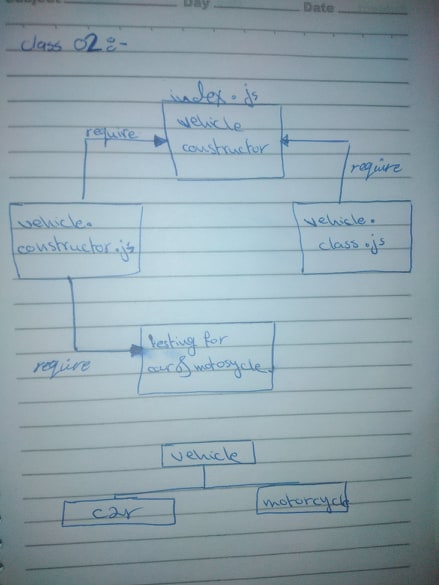 Day
Date
class 02:-
index.js
vehicle
constructor
require
require
vehicle.
constructor.js
vehicle.
class.js
testing for
car & motosycle
require
vehicle
car
motorcycle